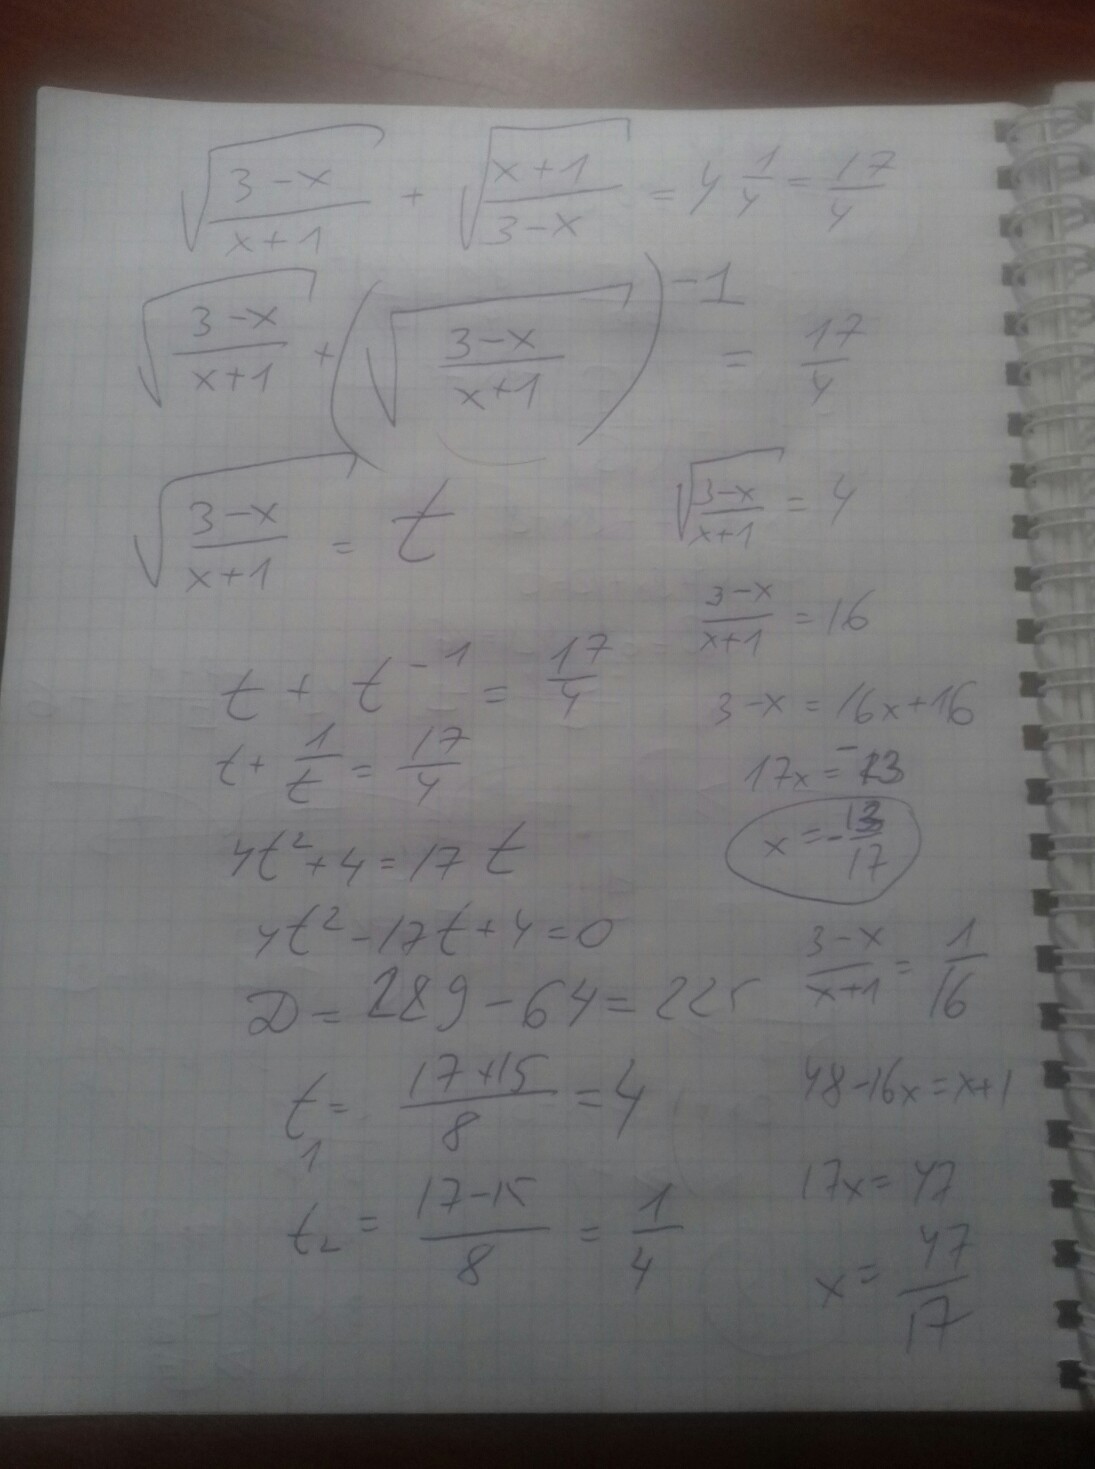 √((3-x)/(x+1)) + √((x+1)/(3-x)) = 4 1/4 = 17/4
√((3-x)/(x+1)) + (√((3-x)/(x+1)))^-1 = 17/4
√((3-x)/(x+1)) = t
t + t^-1 = 17/4
t + 1/t = 17/4
4t² + 4 = 17t
4t² - 17t + 4 = 0
D = 289 - 64 = 225
t₁ = (17+15)/8 = 4
t₂ = (17-15)/8 = 1/4
√((3-x)/(x+1)) = 4
(3-x)/(x+1) = 16
3-x = 16x+16
17x = -13
x = -13/17
(3-x)/(x+1) = 1/16
48-16x = x+1
17x = 47
x = 47/17